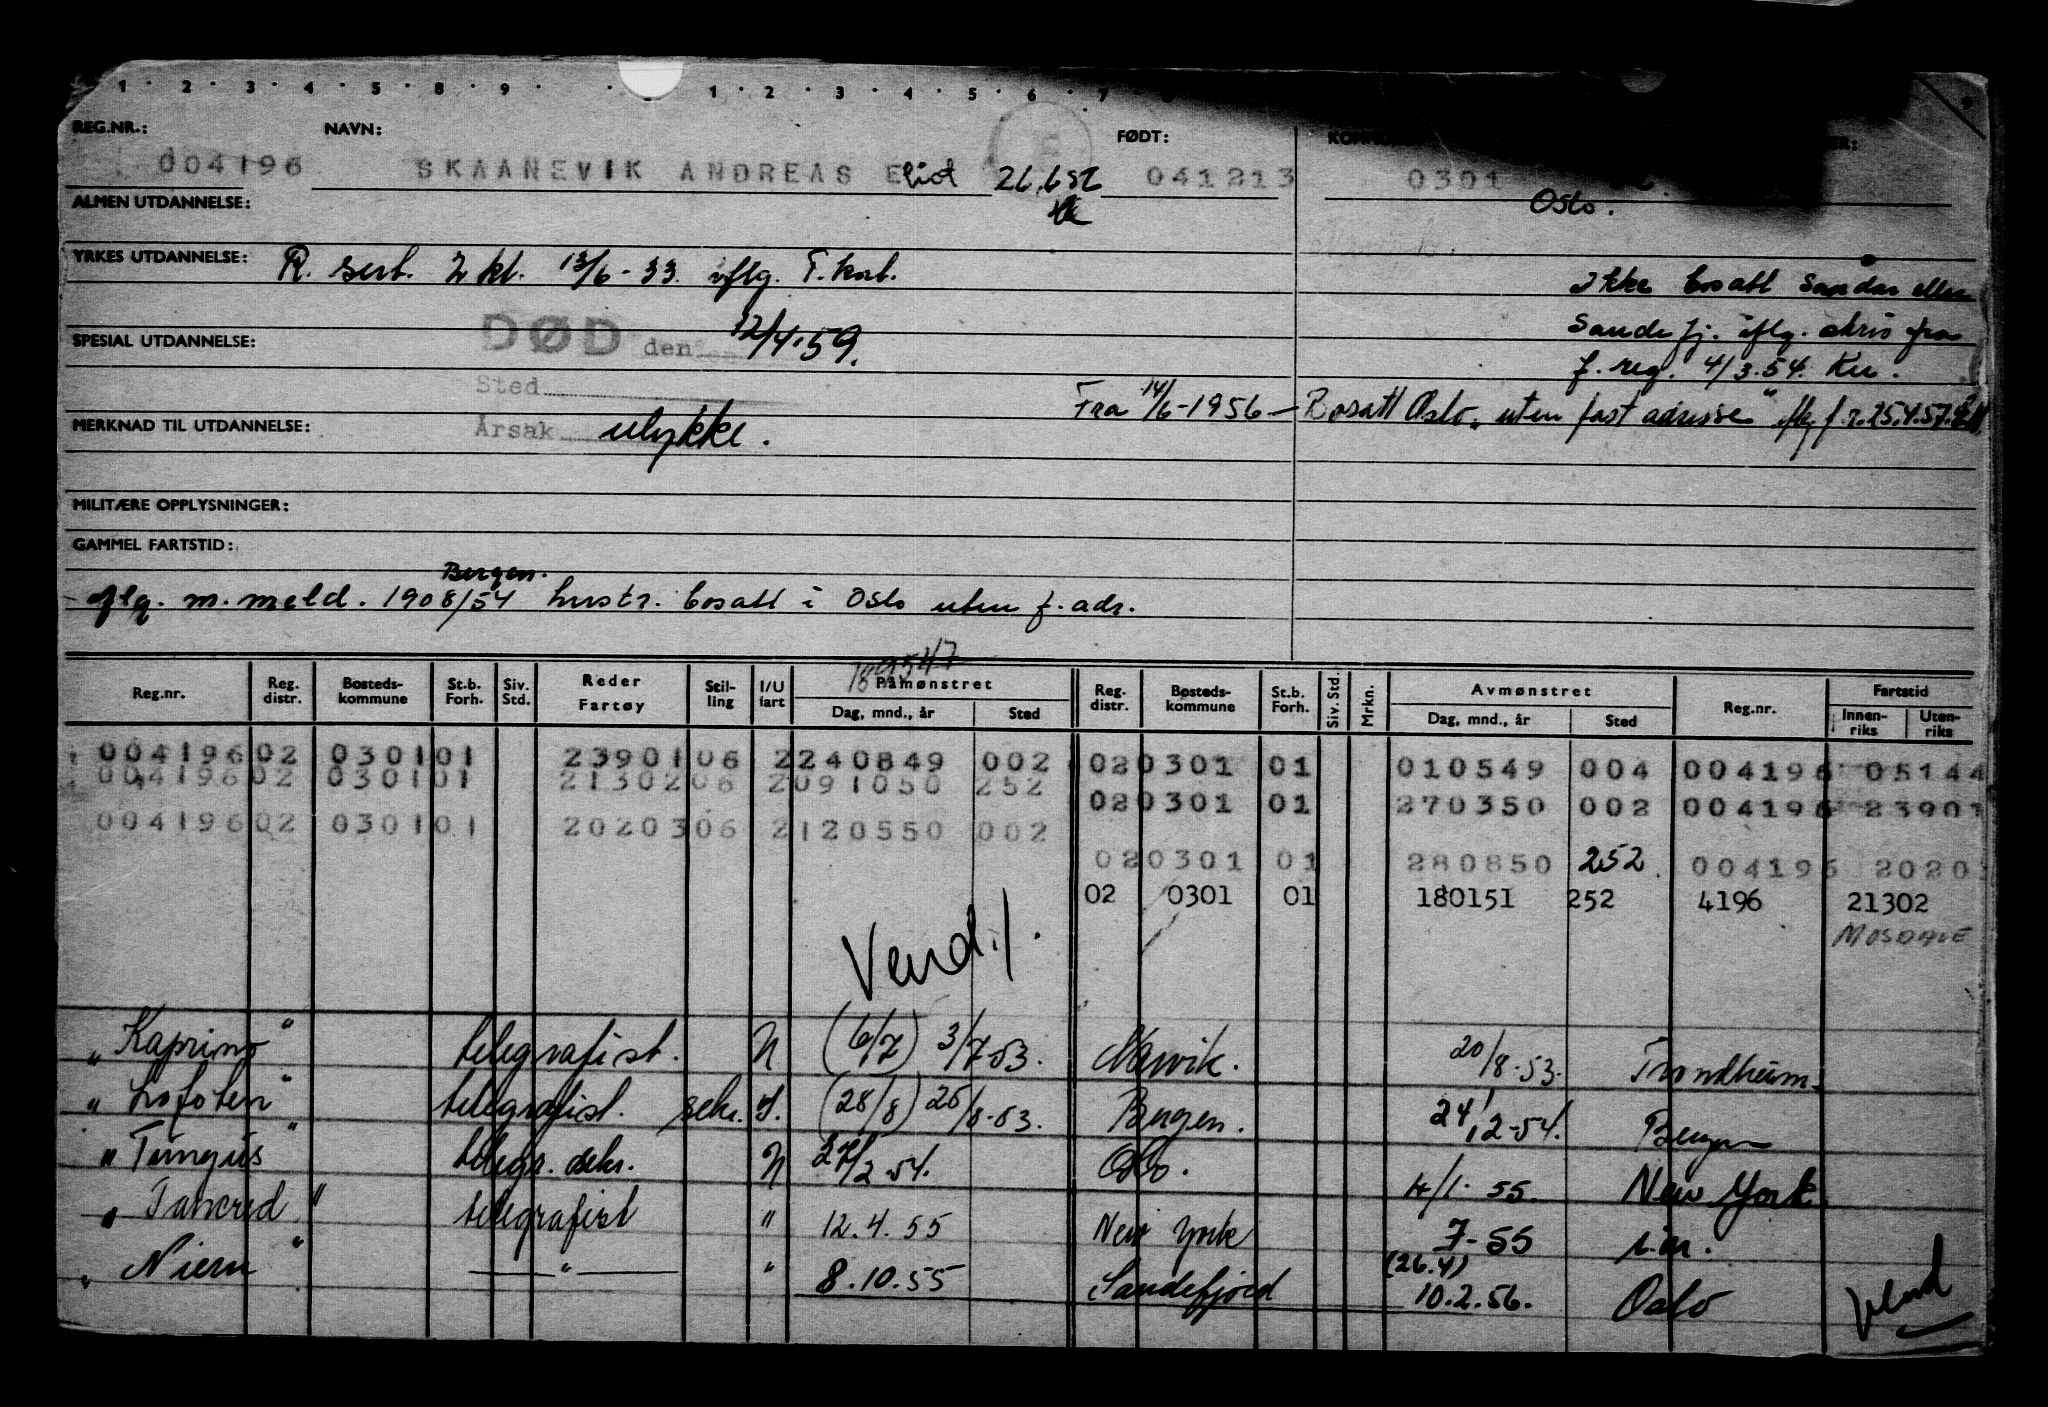 1 · 2 · 3 · 4 · 5 · 8 · 9 · · · 1 · 2 · 3 · 4 · 5 · 6 · 7 ·
REG.NR.: NAVN: FØDT:
004196 SKAANEVIK ANDREAS Eliot 26.6.52 041213 0301
Oslo.
ALMEN UTDANNELSE:
YRKES UTDANNELSE: R. sert. 2 kl. 13/6-33 iflg. T. kort.
Ikke bosatt Sandar eller
Sandefj. iflg. skriv fra
f. reg. 4/3.54.
DØD den 12/4-59.
SPESIAL UTDANNELSE:
Sted
Fra 14/6-1956 — Bosatt Oslo "uten fast adresse" iflg. f.r. 25.4.57.
MERKNAD TIL UTDANNELSE: Årsak ulykke.
MILITÆRE OPPLYSNINGER:
GAMMEL FARTSTID:
Bergen.
iflg. m. meld. 1908/54 hustr. bosatt i Oslo uten f. adr.
189547
Reg.nr. Reg. distr. Bosteds-kommune St.b. Forh. Siv. Std. Reder Fartøy Stil-ling I/U fart Påmønstret Dag, mnd., år Sted Reg. distr. Bosteds-kommune St.b. Forh. Siv. Std. Mrkn. Avmønstret Dag, mnd., år Sted Reg.nr. Fartstid Innen-riks Uten-riks
004196 02 0301 01 23901 06 2 240849 002 02 0301 01 010549 004 004196 05144
004196 02 0301 01 21302 06 2 091050 252
02 0301 01 270350 002 004196 23901
004196 02 0301 01 20203 06 2 120550 002
02 0301 01 280850 252 004196 2020
02 0301 01 180151 252 4196 21302
MOSDALE
Vend!
"Kaprino" telegrafist. N (6/7) 3/7-53. Narvik. 20/8-53. Trondheim.
"Lofoten" telegrafist. sekr. I. (28/8) 25/8-53. Bergen. 24/12-54. Bergen
"Tungus" telegr. sekr. N 27/2-54. Oslo. 4/1-55. New York.
"Tancred" telegrafist " 12.4.55 New York 7-55 i.m.
"Nieru" —"— " 8.10.55 Sandefjord (26.4) 10.2.56. Oslo
Vend